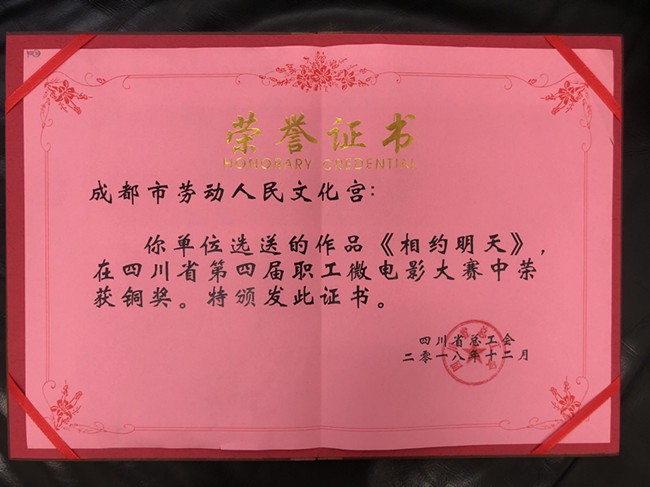 荣誉证书
HONORARY CREDENTIAL
成都市劳动人民文化宫：
你单位选送的作品《相约明天》，
在四川省第四届职工微电影大赛中荣
获铜奖。特颁发此证书。
四川省总工会
二零一八年十二月